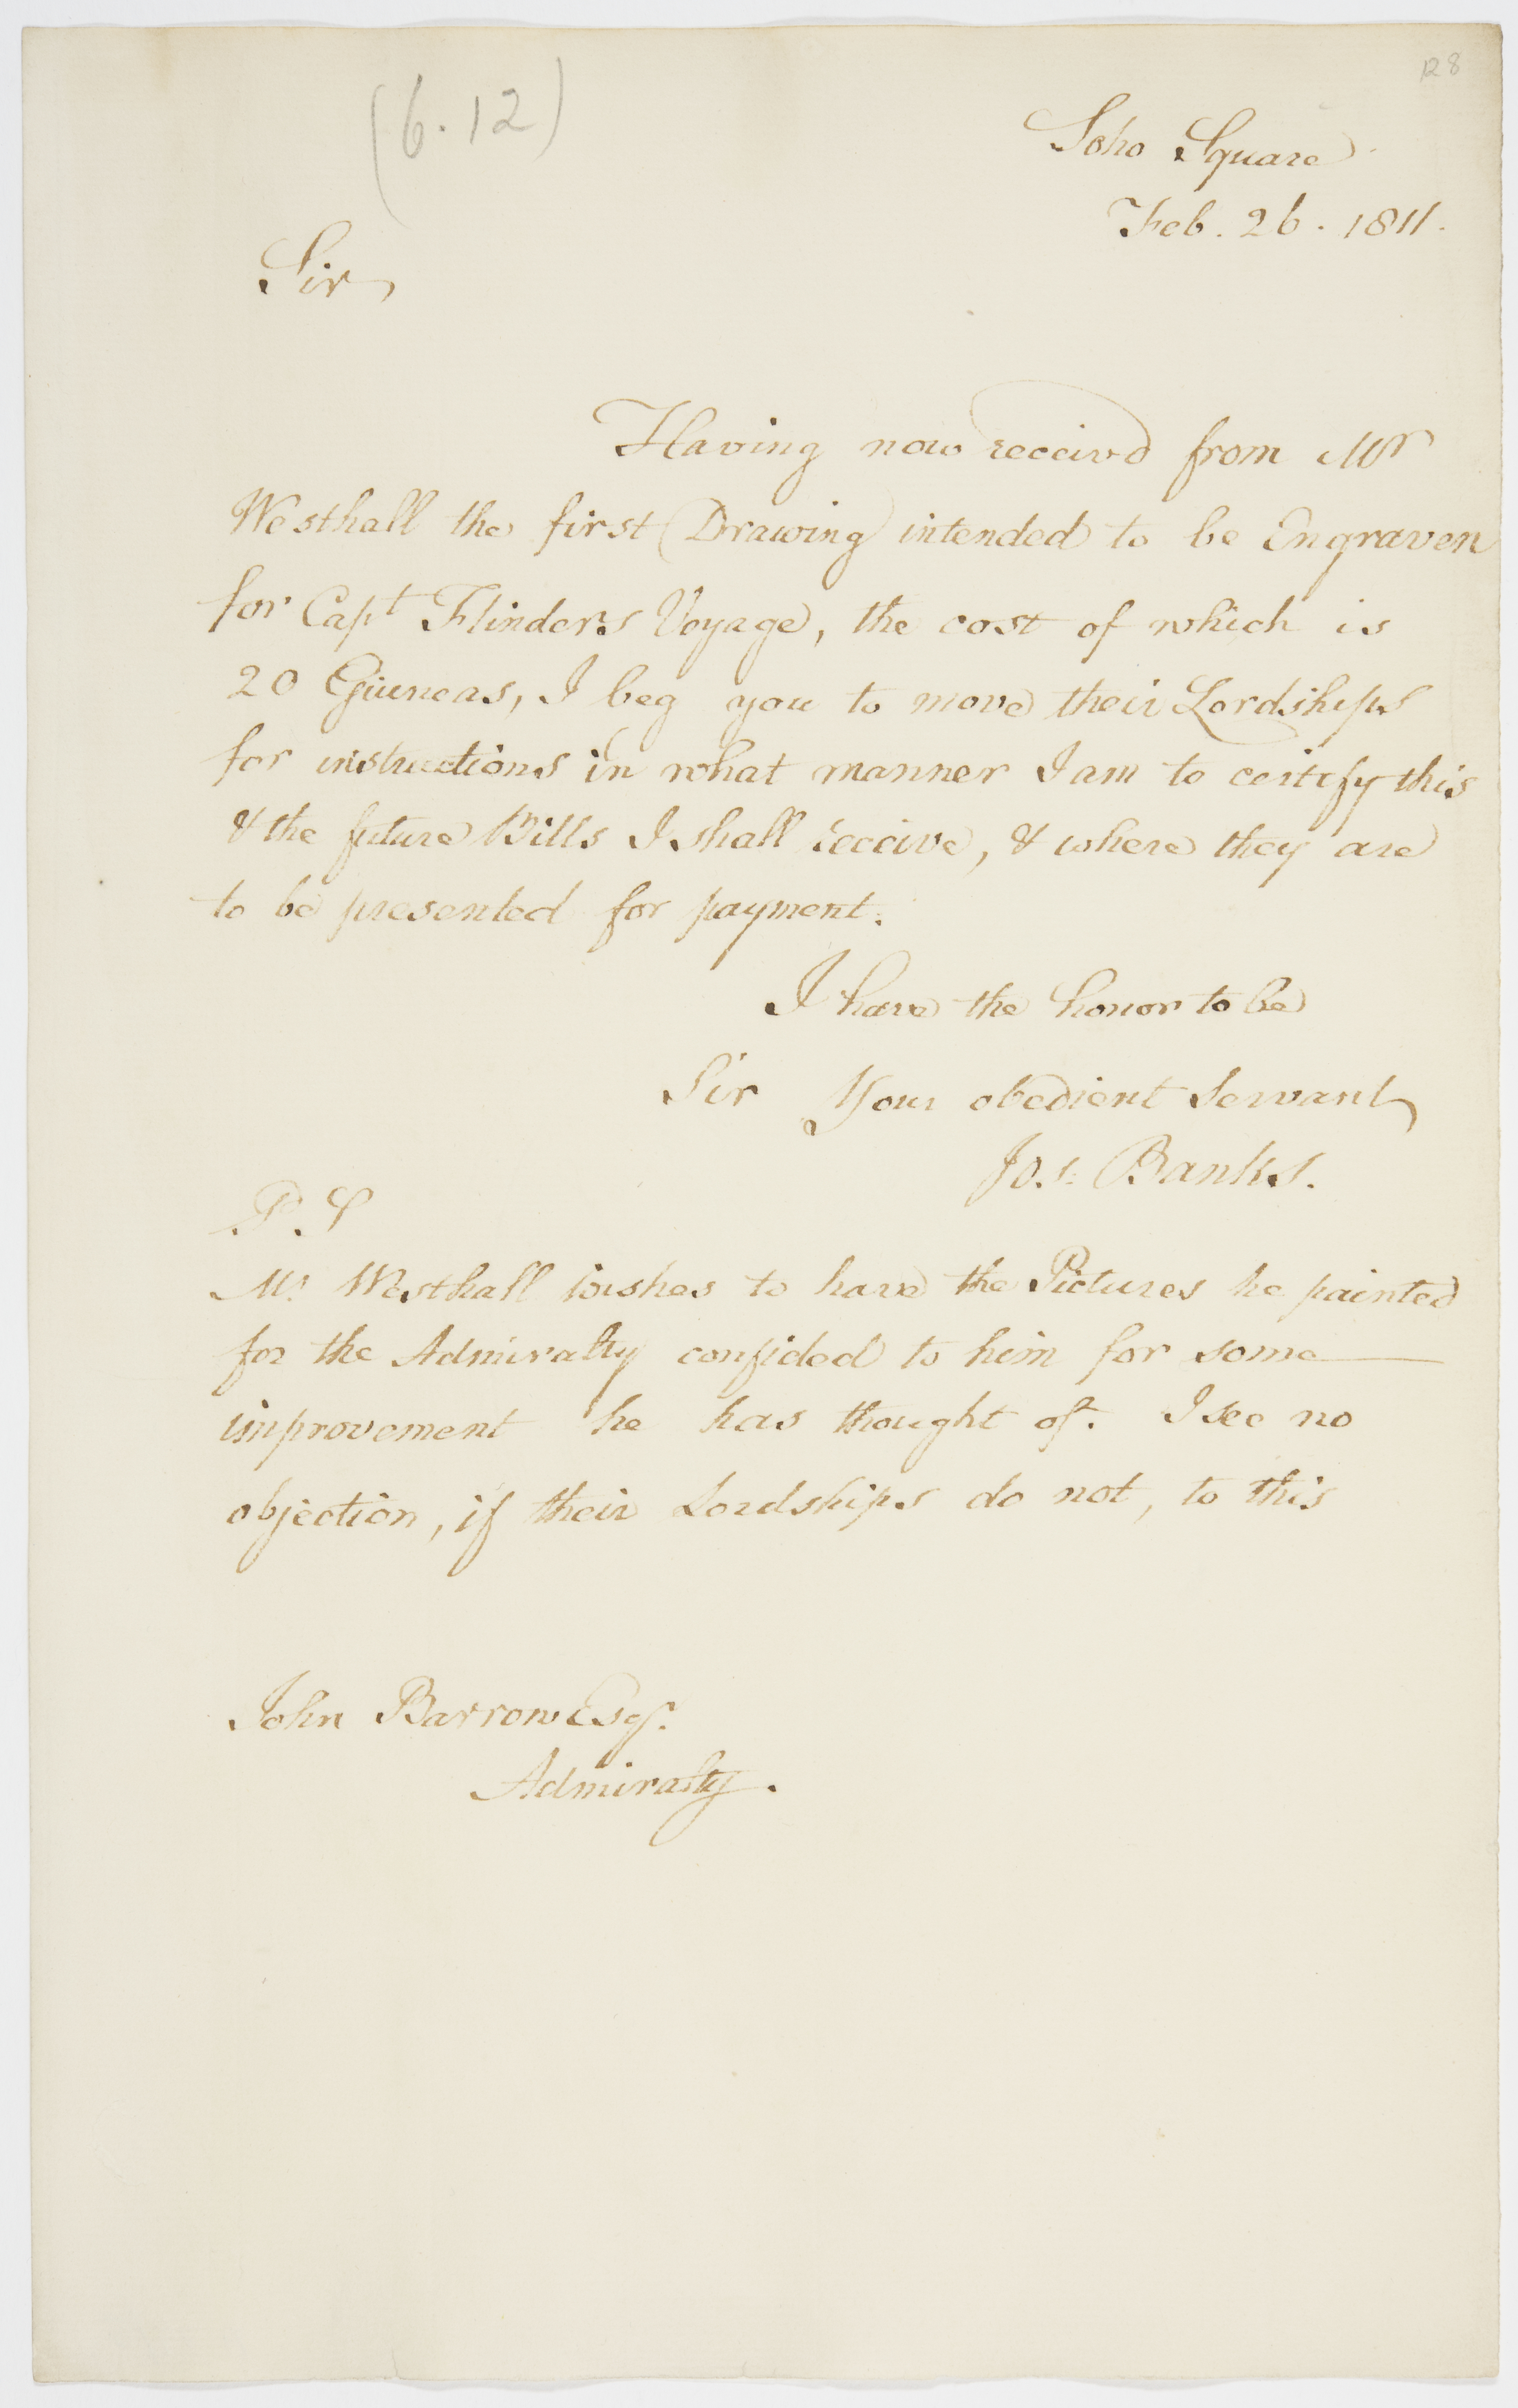 128
(6.12)
Soho Square
Feb. 26. 1811.
Sir,
Having now receivd from Mr
Westhall the first Drawing intended to be Engraven
for Capt Flinders Voyage, the cost of which is
20 Guineas, I beg you to move their Lordships
for instructions in what manner I am to certify this
& the future Bills I shall receive, & where they are
to be presented for payment.
I have the honor to be
Sir Your obedient Servant
Jos: Banks.
P.S
Mr. Westhall wishes to have the Pictures he painted
for the Admiralty confided to him for some
improvement he has thought of. I see no
objection, if their Lordships do not, to this
John Barrow Esqr.
Admiralty.